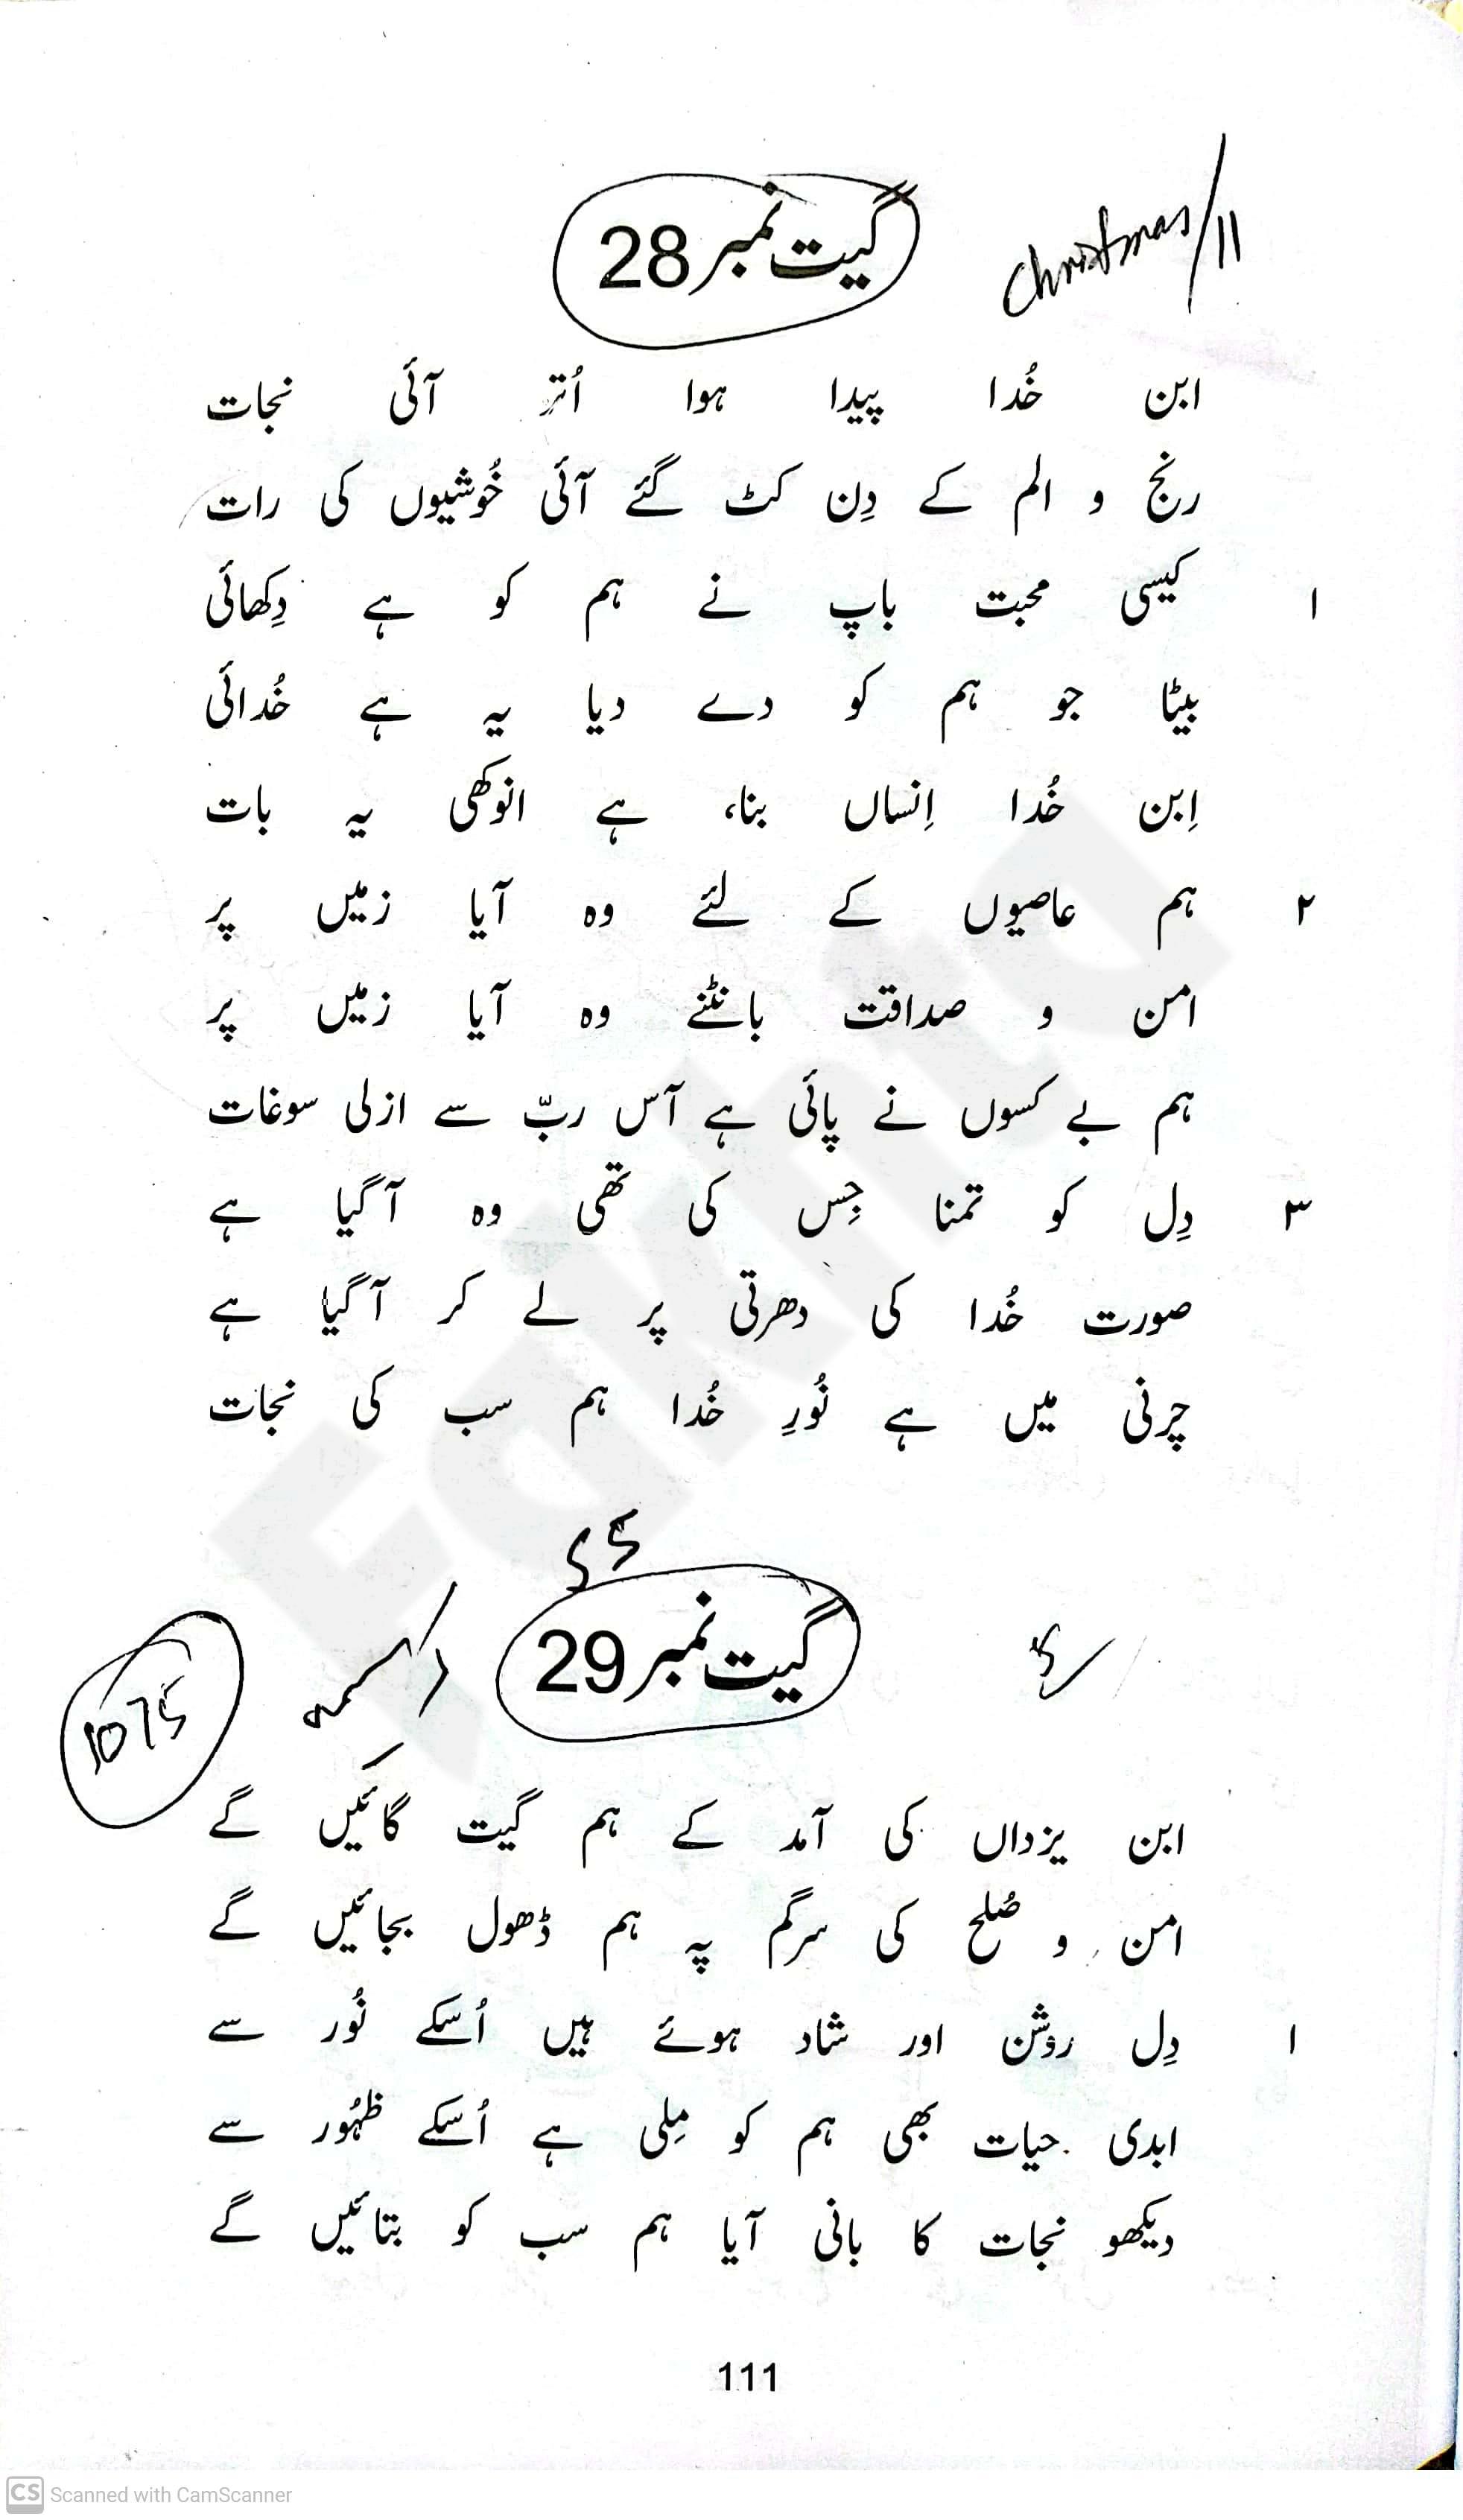 گیت نمبر 28
Christmas/11
ابن خُدا پیدا ہوا اُتر آئی نجات
رنج و الم کے دِن کٹ گئے آئی خُوشیوں کی رات
۱ کیسی محبت باپ نے ہم کو ہے دِکھائی
بیٹا جو ہم کو دے دیا یہ ہے خُدائی
اِبن خُدا اِنساں بنا، ہے انوکھی یہ بات
۲ ہم عاصیوں کے لئے وہ آیا زمیں پر
امن و صداقت بانٹنے وہ آیا زمیں پر
ہم بے کسوں نے پائی ہے آس ربّ سے ازلی سوغات
۳ دِل کو تمنا جِس کی تھی وہ آگیا ہے
صورت خُدا کی دھرتی پر لے کر آگیا ہے
چرنی میں ہے نُورِ خُدا ہم سب کی نجات
گیت نمبر 29
1075
ابن یزداں کی آمد کے ہم گیت گائیں گے
امن و صُلح کی سرگم پہ ہم ڈھول بجائیں گے
۱ دِل روشن اور شاد ہوئے ہیں اُسکے نُور سے
ابدی حیات بھی ہم کو مِلی ہے اُسکے ظہُور سے
دیکھو نجات کا بانی آیا ہم سب کو بتائیں گے
111
Fakhta
CS Scanned with CamScanner